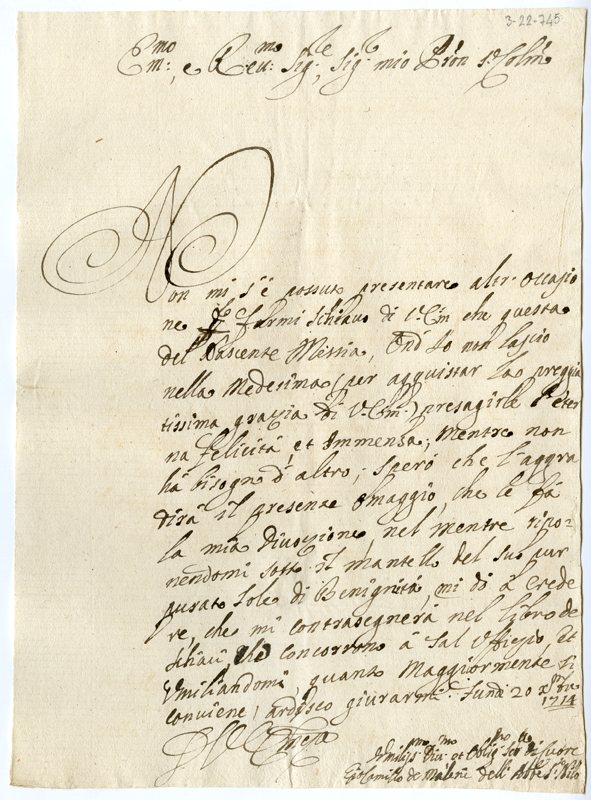 3-22-745
Em:mo, e Reu:mo Sig:re, Sig:re mio Pron s. Colmo
Non mi s'è possuto presentare altr. occasio
ne farmi schiauo di V. Em che questa
del Nascente Messia, Ond'Io non lascio
nella medesima (per acquistar la preggia
tissima grazia di V. Em:) presagirle l'eter
na felicità, et Immensa; mentre non
hà bisogno d'altro; spero che l'aggra
dirà il presente omaggio, che le fà
la mia diuozione, nel mentre ripo=
nendomi sotto il mantello del suo pur
purato sole di Benignità, mi dò à crede
re, che mi contrasegnerà nel libro de
schiaui, che concorrono à tal Uffizio, et
Umiliandomi, quanto Maggiormente si
conuiene, ardisco giurarmi. Fundi 20 Xbre
1714
D V Emza
Umiliss:mo Diu:mo et Oblig:mo Ser:re di Cuore